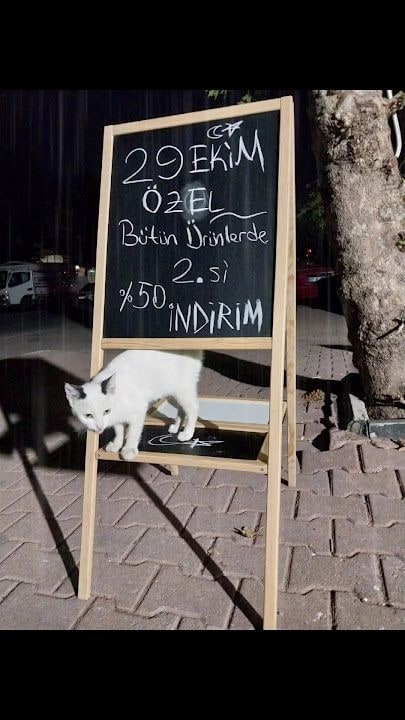 29 EKİM
ÖZEL
Bütün Ürünlerde
2. si
%50 İNDİRİM